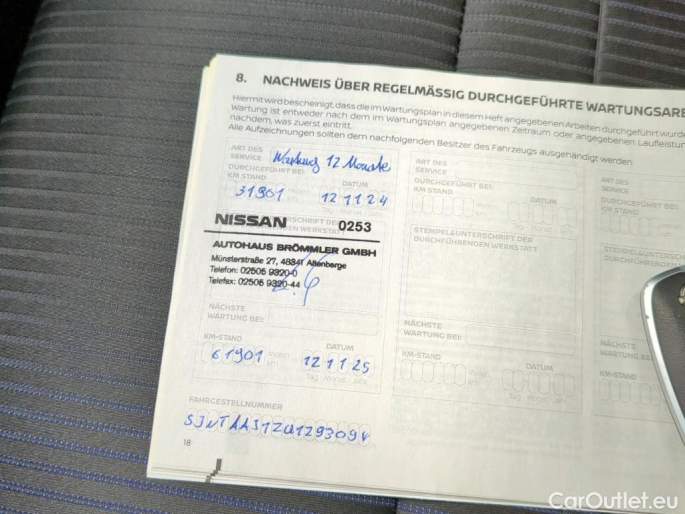 8. NACHWEIS ÜBER REGELMÄSSIG DURCHGEFÜHRTE WARTUNGSARB
Hiermit wird bescheinigt, dass die im Wartungsplan in diesem Heft angegebenen Arbeiten durchgeführt wurde
Wartung ist entweder nach dem im Wartungsplan angegebenen Zeitraum oder angegebenen Laufleistung
nachdem, was zuerst eintritt.
Alle Aufzeichnungen sollten dem nachfolgenden Besitzer des Fahrzeugs ausgehändigt werden
ART DES
SERVICE
Wartung 12 Monate
DURCHGEFÜHRT BEI
KM STAND DATUM
31901 12 11 24
NISSAN 0253
AUTOHAUS BRÖMMLER GMBH
Münsterstraße 27, 48341 Altenberge
Telefon: 02505 9320-0
Telefax: 02505 9320-44
NÄCHSTE
WARTUNG BEI:
KM-STAND DATUM
61901 12 11 25
Tag
FAHRGESTELLNUMMER
18
ART DES
SERVICE
DURCHGEFÜHRT BEI
KM STAND DATUM
STEMPEL/UNTERSCHRIFT DER
DURCHFÜHRENDEN WERKSTATT
NÄCHSTE
WARTUNG BEI:
KM-STAND DATUM
Tag Monat Jahr
ART DES
SERVICE
DURCHGEFÜHRT
KM STAND
STEMPEL/UNTERS
DURCHFÜHREND
NÄCHSTE
WARTUNG BEI
KM-STAND
CarOutlet.eu